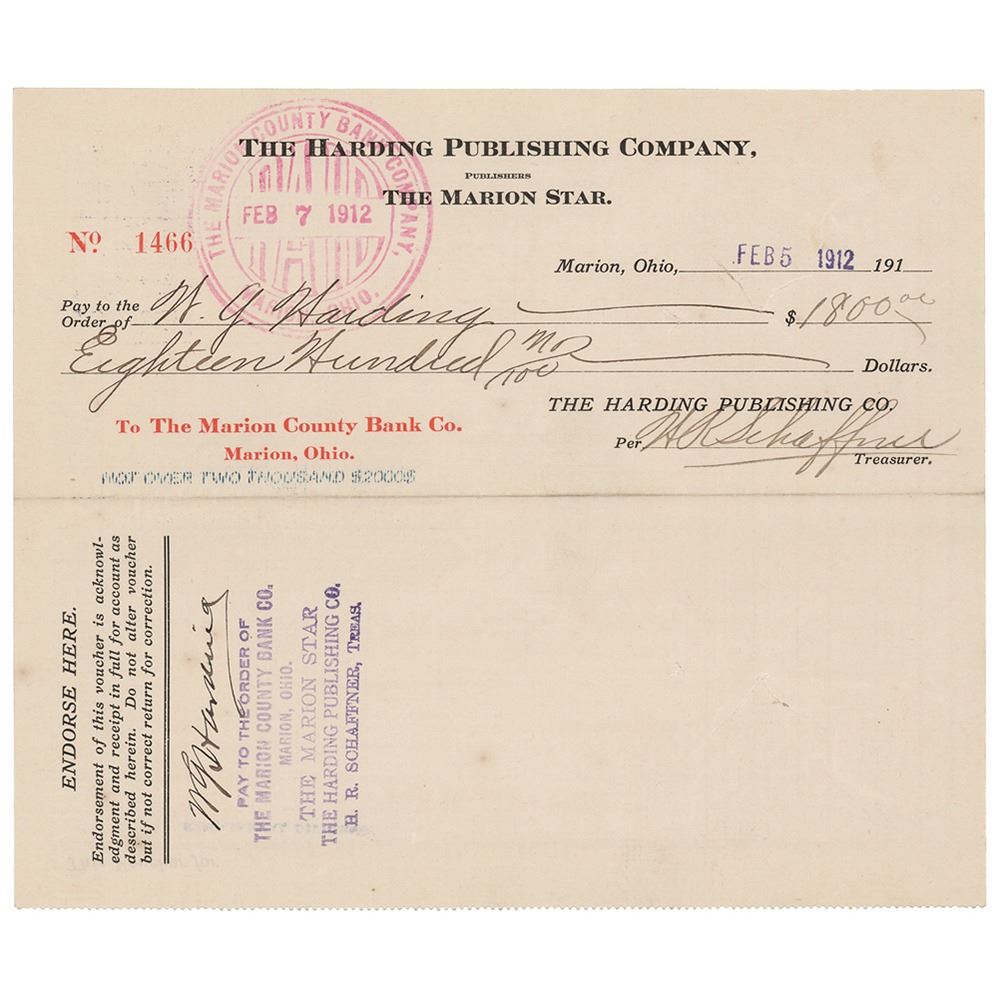 THE HARDING PUBLISHING COMPANY,
PUBLISHERS
THE MARION STAR.
THE MARION COUNTY BANK COMPANY,
FEB 7 1912
MARION, OHIO.
No 1466
Marion, Ohio, FEB 5 1912 191
Pay to the
Order of W. G. Harding $1800 00
Eighteen Hundred no/100 Dollars.
THE HARDING PUBLISHING CO.
To The Marion County Bank Co.
Marion, Ohio.
Per H R Schaffner
Treasurer.
NOT OVER TWO THOUSAND $2000$
ENDORSE HERE.
Endorsement of this voucher is acknowl-
edgment and receipt in full for account as
described herein. Do not alter voucher
but if not correct return for correction.
W G Harding
PAY TO THE ORDER OF
THE MARION COUNTY BANK CO.
MARION, OHIO.
THE MARION STAR
THE HARDING PUBLISHING CO.
H. R. SCHAFFNER, TREAS.